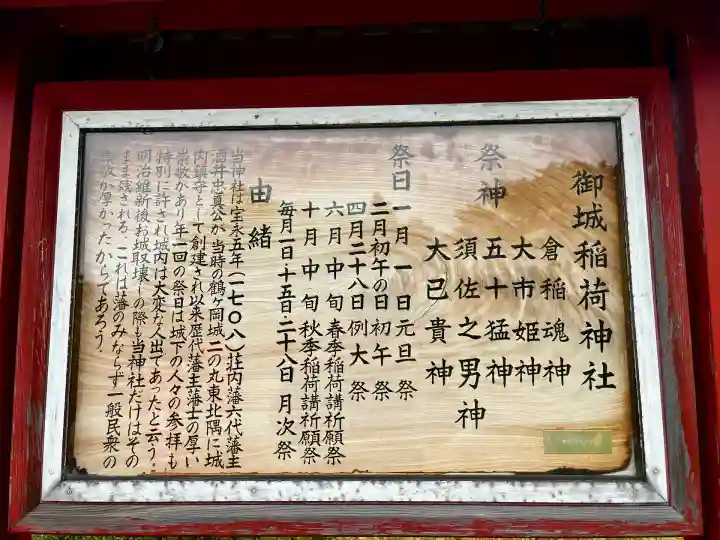 御城稲荷神社
祭神
倉稲魂神
大市姫神
五十猛神
須佐之男神
大已貴神
祭日
一月一日元旦祭
二月初午の日初午祭
四月二十八日例大祭
六月中旬春季稲荷講祈願祭
十月中旬秋季稲荷講祈願祭
毎月一日・十五日・二十八日月次祭
由緒
当神社は宝永五年(一七〇八)荘内藩六代藩主
酒井忠真公が当時の鶴ヶ岡城二の丸東北隅に城
内鎮守として創建され以来歴代藩主藩士の厚い
崇敬があり年一回の祭日は城下の人々の参拝も
特別に許され城内は大変な人出であったと云う。
明治維新後お城取壊しの際も当神社だけはその
まま残される、これは藩のみならず一般民衆の
崇敬が厚かったからであろう。